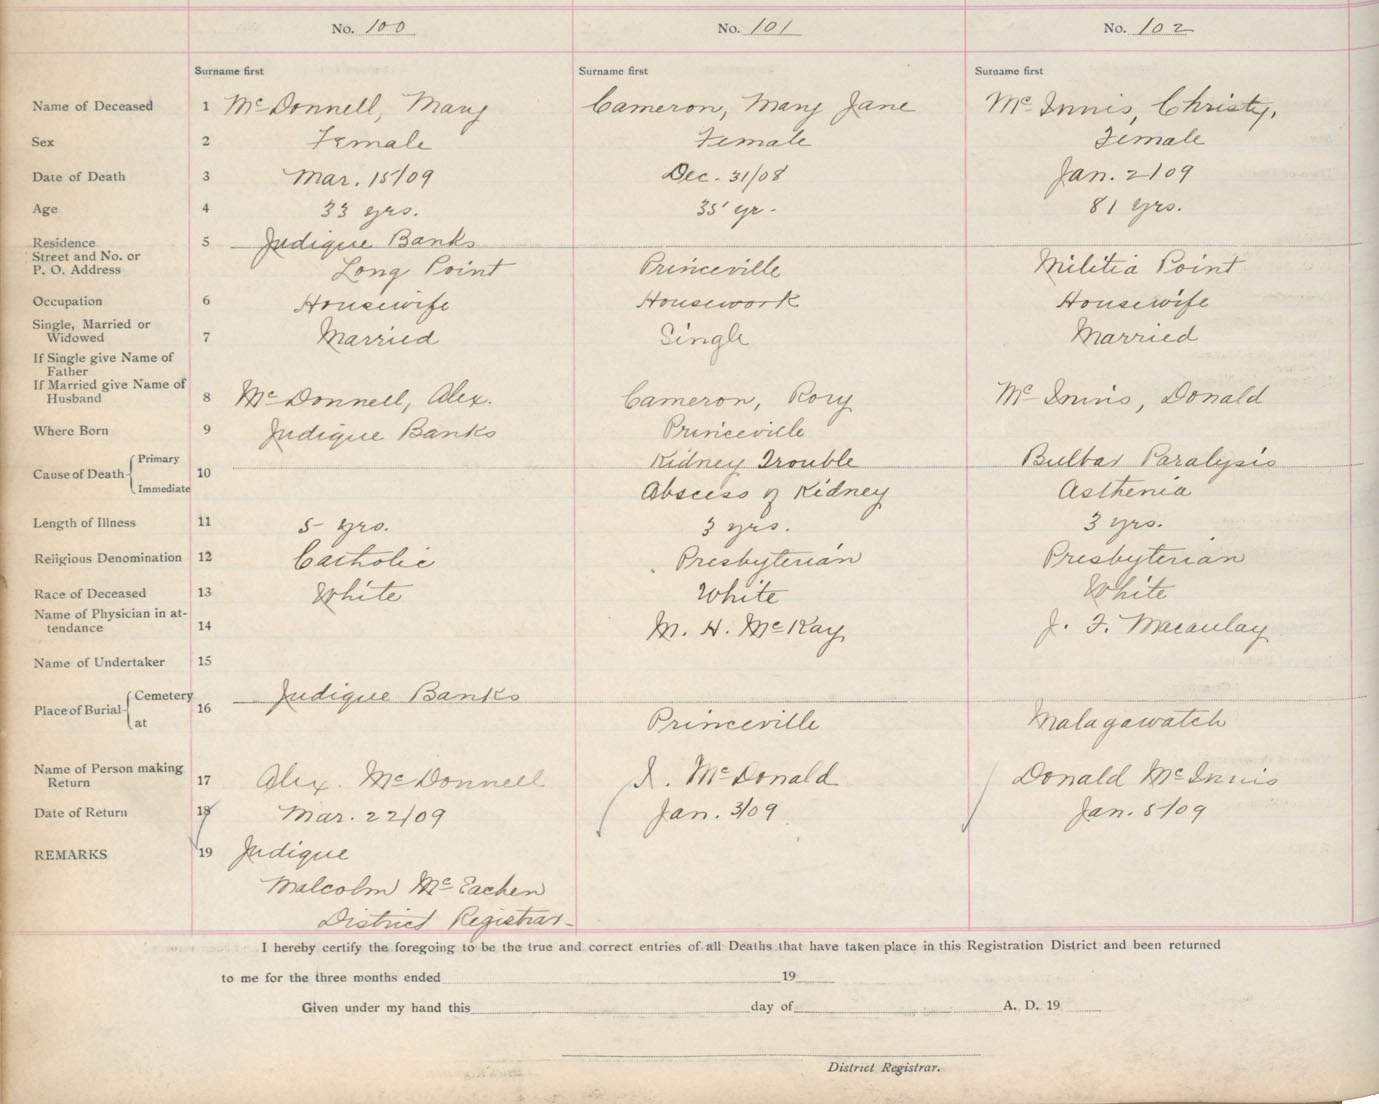 No. 100 No. 101 No. 102
Surname first Surname first Surname first
Name of Deceased 1 McDonnell, Mary Cameron, Mary Jane McInnis, Christy,
Sex 2 Female Female Female
Date of Death 3 Mar. 15/09 Dec. 31/08 Jan. 2/09
Age 4 33 yrs. 35 yr. 81 yrs.
Residence 5 Judique Banks
Street and No. or
P. O. Address Long Point Princeville Militia Point
Occupation 6 Housewife Housework Housewife
Single, Married or
Widowed 7 Married Single Married
If Single give Name of
Father
If Married give Name of
Husband 8 McDonnell, Alex. Cameron, Rory McInnis, Donald
Where Born 9 Judique Banks Princeville
Cause of Death Primary 10 Kidney Trouble Bulbar Paralysis
Immediate Abscess of Kidney Asthenia
Length of Illness 11 5 yrs. 3 yrs. 3 yrs.
Religious Denomination 12 Catholic Presbyterian Presbyterian
Race of Deceased 13 White White White
Name of Physician in at-
tendance 14 M. H. McKay J. F. Macaulay
Name of Undertaker 15
Place of Burial Cemetery 16 Judique Banks
at Princeville Malagawatch
Name of Person making
Return 17 Alex. McDonnell McDonald Donald McInnis
Date of Return 18 Mar. 22/09 Jan. 3/09 Jan. 5/09
REMARKS 19 Judique
Malcolm McEachen
District Registrar
I hereby certify the foregoing to be the true and correct entries of all Deaths that have taken place in this Registration District and been returned
to me for the three months ended 19
Given under my hand this day of A. D. 19
District Registrar.